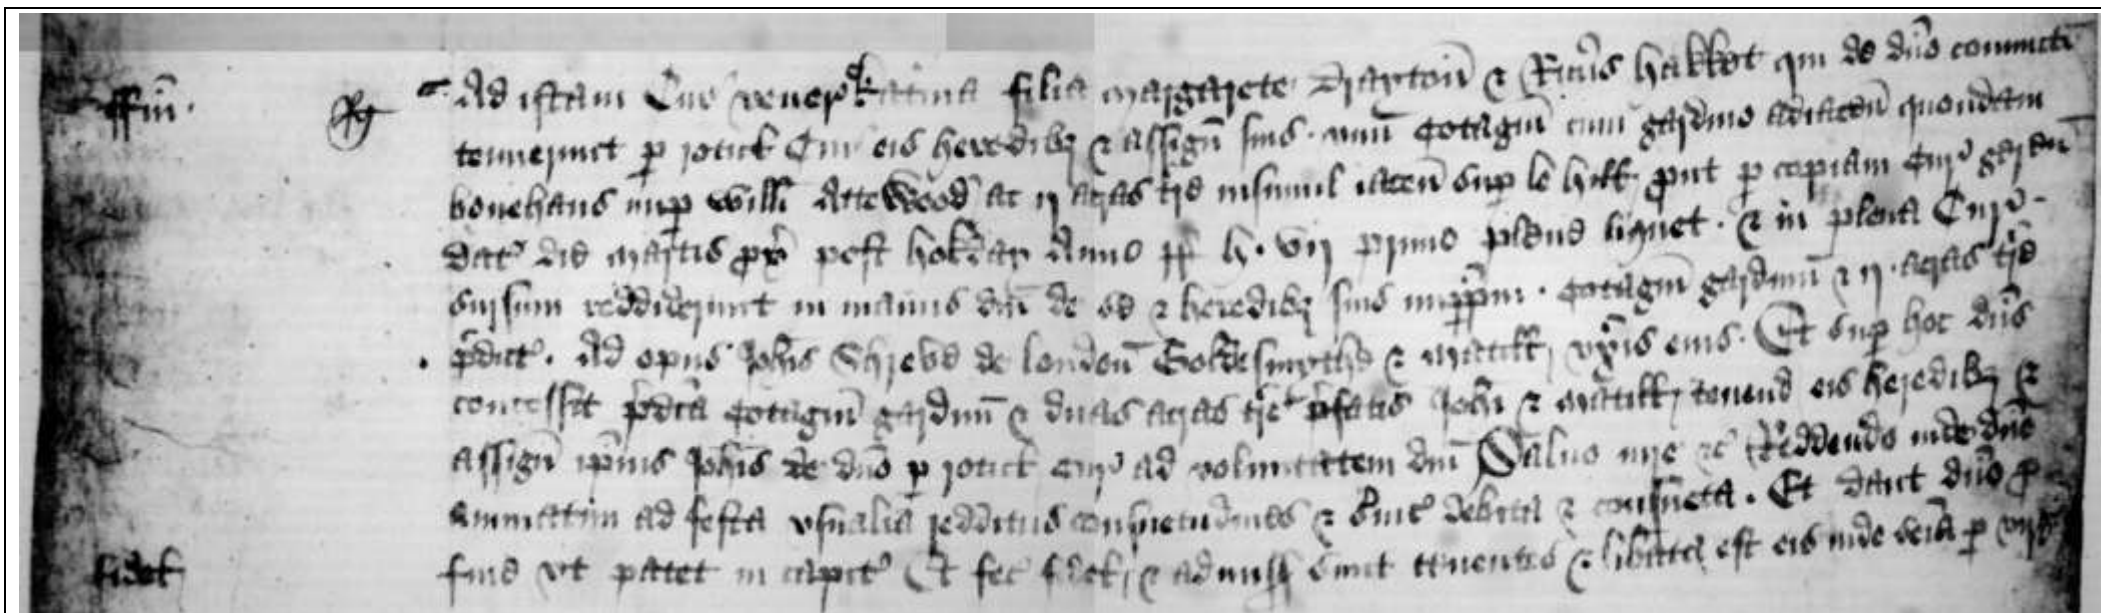 ffin̄ Ad istam Cur̄ vener̄t Katina filia Margarete Drayton̄ & Ric̄us Hakket qui de dn̄o coniuncti
tenuerunt p̱ rotul Cur̄ eis heredib₃ & assigñ suis · unū cotagiū cum gardino adiaceñ quondam
bonehans nup̱ Will̄i Atte Wood ac ij acras tr̄e insimul iaceñ sup̱ le hill, put p̱ copiam Cur̄
dat̄ die Martis px̄ post hokday Anno H · vij primo plene liquet · & in plena Cur̄
sursum reddiderunt in manus dn̄i de se & heredib₃ suis imp̱p̱m · cotagiū gardinū & ij · acras tr̄e
p̄dict̄ · Ad opus Joh̄is Shrebe de london̄ Goldesmythe & Matill, ux̄is eius · Et sup̱ hoc dn̄s
concessit p̄dc̄a cotagiū gardinū & duas acras tr̄e p̄fatis Joh̄i & Matill, tenend eis heredib₃ &
assigñ ip̄ius Joh̄is de dn̄o p̱ rotul cur̄ ad voluntatem dn̄i Salvo iure &c̄ Reddendo inde dn̄o
annuatim ad festa usualia redditus consuetudines & s̄vic̄ debita & consueta · Et dant dn̄o p
fidel fine vt patet in capit̄ Et fec̄ fidel, & admissi sunt tenentes & lib̄ata est eis inde sei̅a p̱ virḡ